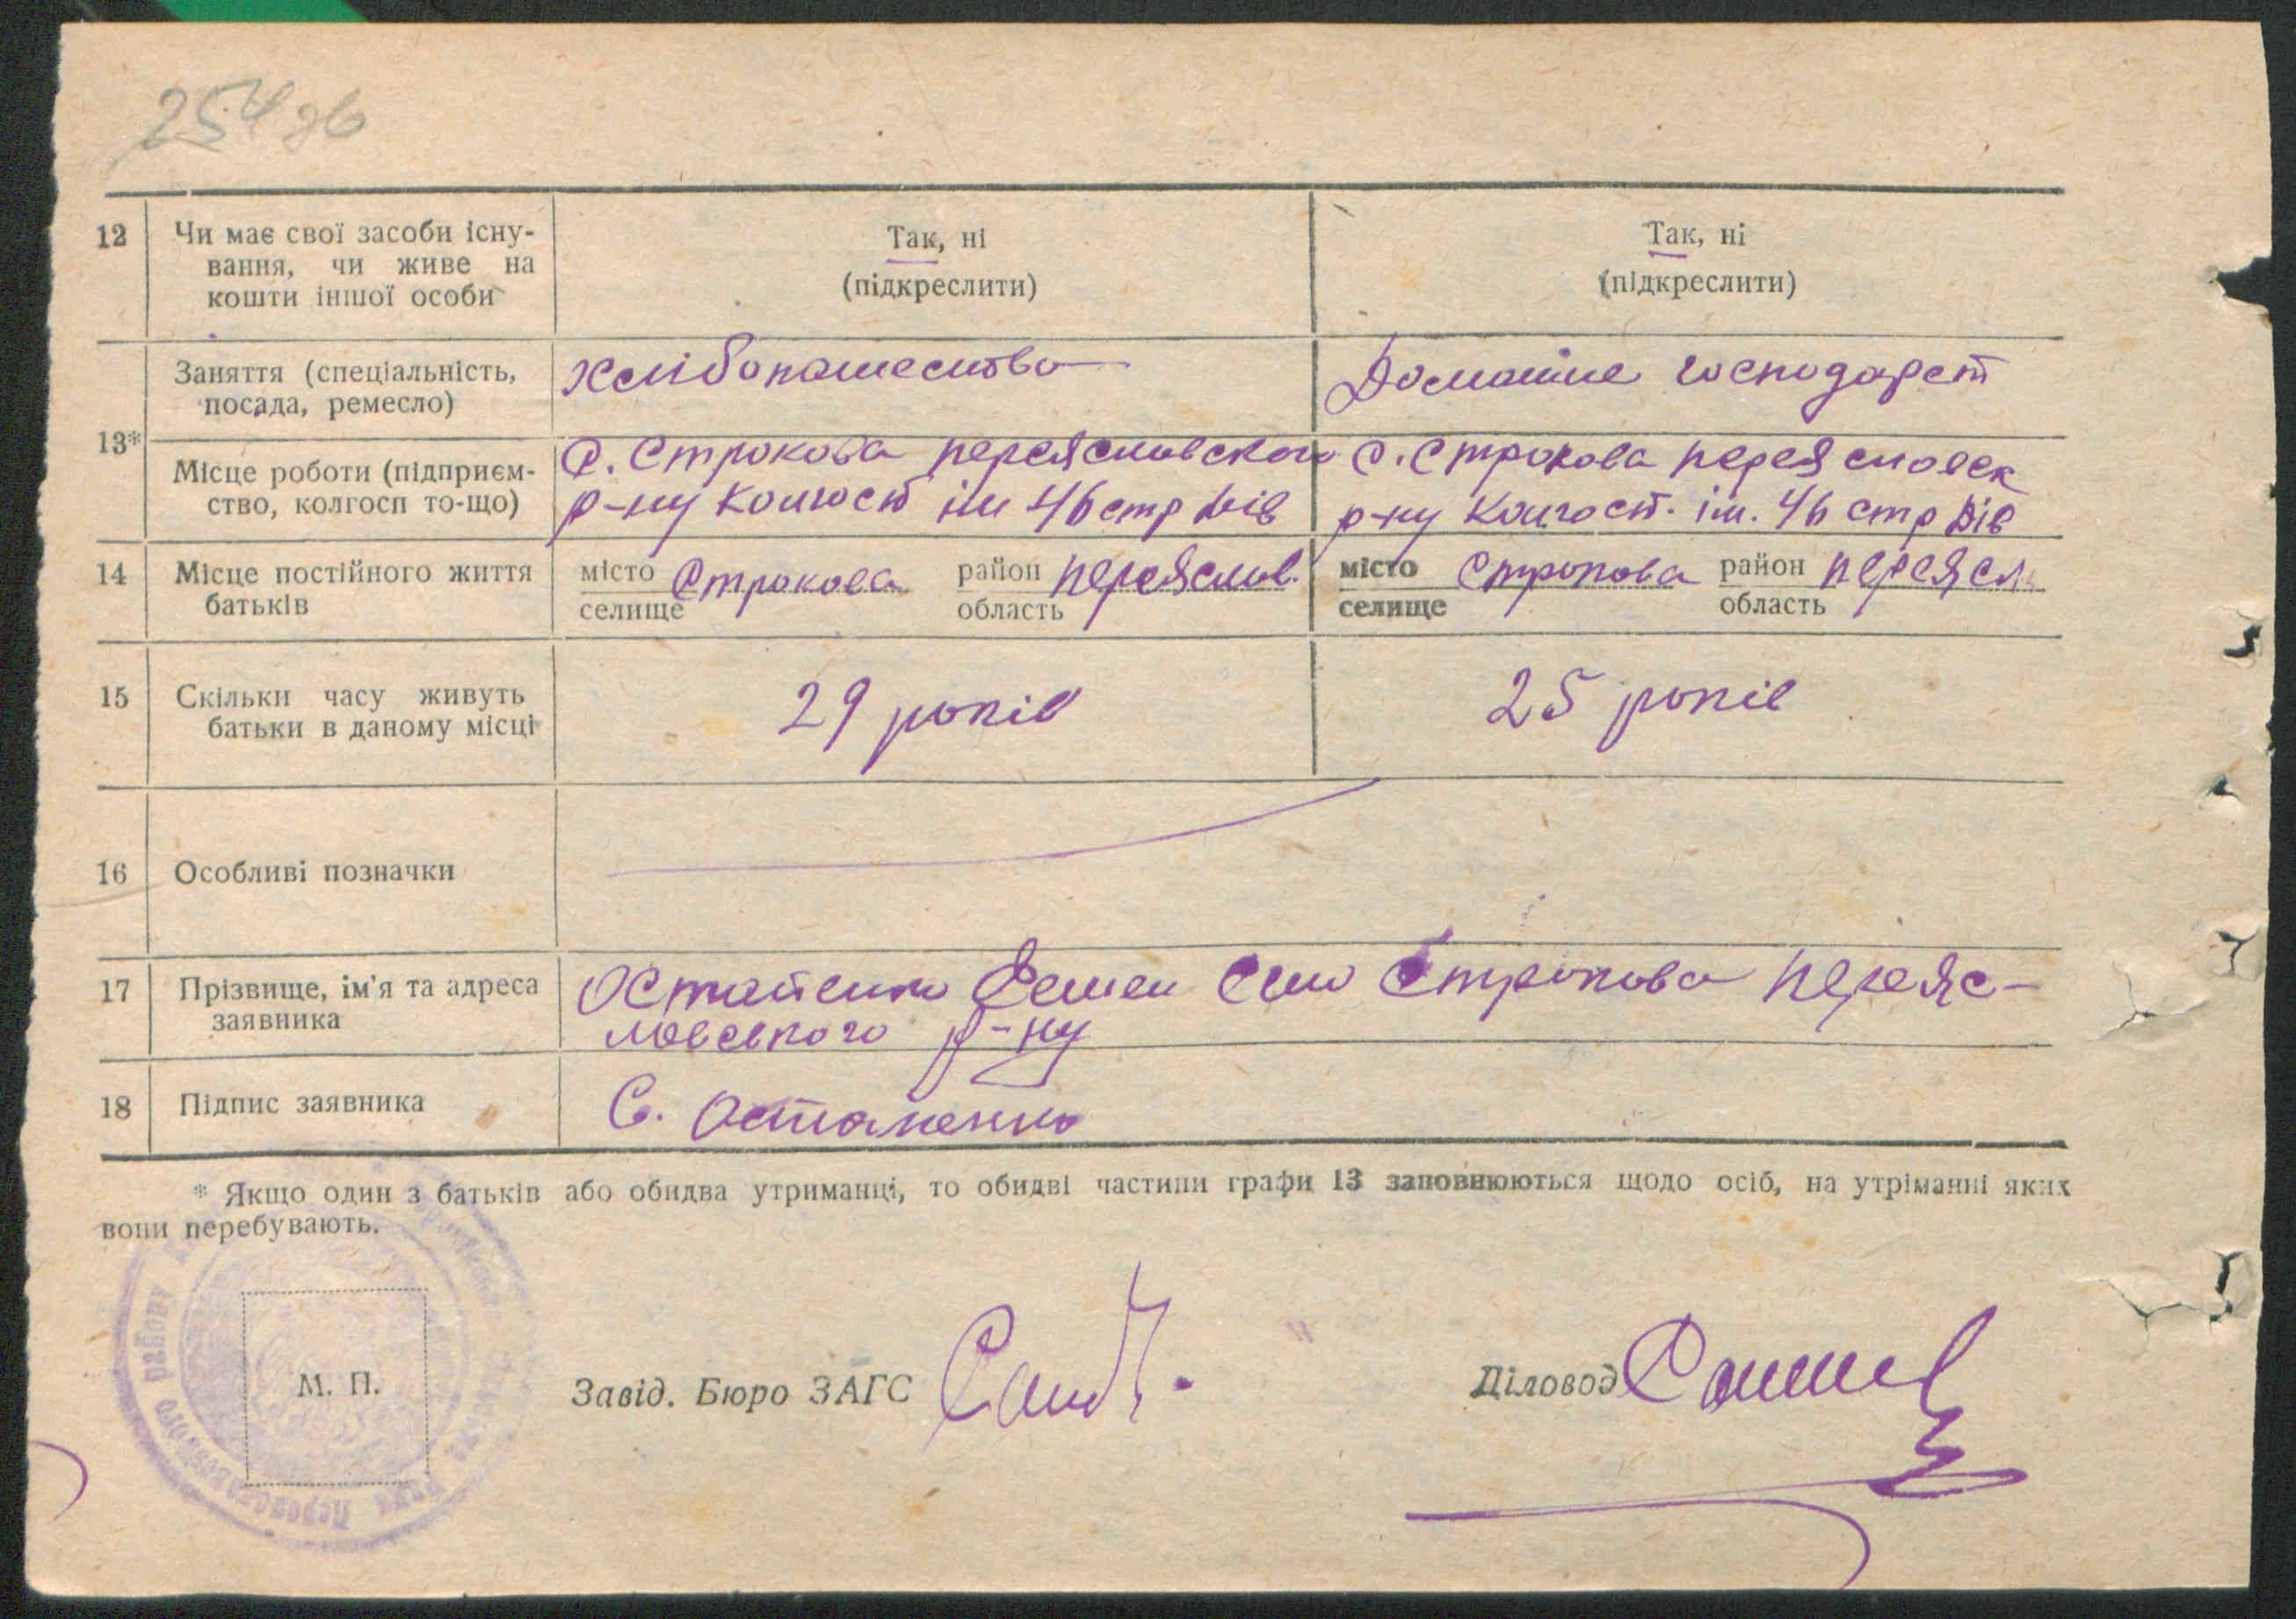 254 зв
12 Чи має свої засоби існу-
вання, чи живе на
кошти іншої особи
Так, ні
(підкреслити)
Так, ні
(підкреслити)
13*
Заняття (спеціальність,
посада, ремесло)
Хлібопашество
Домашнє господарст
Місце роботи (підприєм-
ство, колгосп то-що)
с. Строкова переяславского
р-ну колгосп ім 46 стр Див
с. Строкова переяславск
р-ну колгосп. ім. 46 стр Див
14 Місце постійного життя
батьків
місто Строкова район переяслав.
селище область
місто Строкова район переясл
селище область
15 Скільки часу живуть
батьки в даному місці
29 років
25 років
16 Особливі позначки
17 Прізвище, ім'я та адреса
заявника
Остапенко Семен село Строкова Переяс-
лавського р-ну
18 Підпис заявника
С. Остапенко
* Якщо один з батьків або обидва утриманці, то обидві частини графи 13 заповнюються щодо осіб, на утріманні яких
вони перебувають.
М. П.
Завід. Бюро ЗАГС
Діловод
Переяславського району